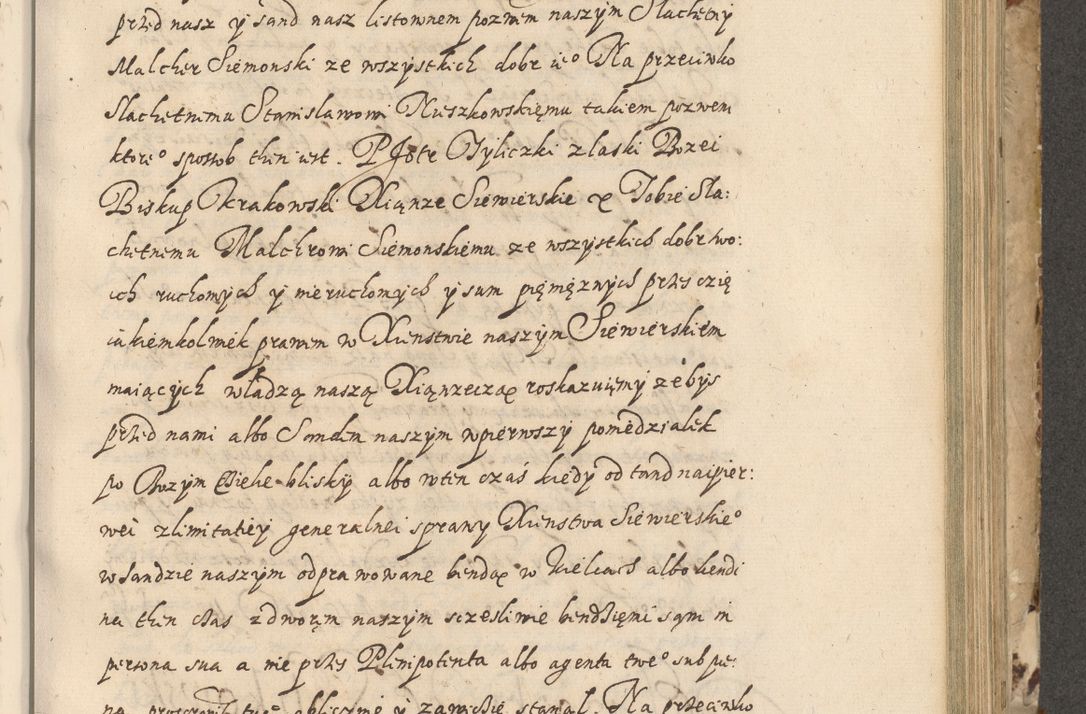 przed nasz y sand nasz listownem pozwem naszym Slachetny
Malcher Siemonski ze wszystkich dobr ieº Na przeciwko
Slachetnemu Stanislawowi Nieszkowskięmu takiem pozwem
ktoreº sposob then iest. Piotr Tyliczki z laski Bozei
Biskup Krakowski Xiąnze Siewierskie ҩ Tobie Sla:
chetnemu Malchrowi Siemonskiemu ze wszystkich dobr two:
ich ruchomych y nieruchomych y sum pięniężnych przes czię
iakiemkolwiek prawem w Xienstwie naszym Siewierskiem
maiących władzą naszą Xiąnzeczą roskazuięmy żebyś
przed nami albo Sandem naszym w pierwszy poniedzialek
po Bozym Ciele bliskÿ albo w ten czaś kiedy od tand naipier:
wei z limitatiey generalnei sprawy Xienstwa Siewierskieº
w Sandzie naszym odprawowane bendą w Kielcach albo kendi
na then czas z dworęm naszym scześliwie bendźięmi sąm in
persona sua a nie przes Plenipotenta albo agenta tweº sub pœ:
na proscripti tweº oblicznie y zawicie stanął. Na przeciwko